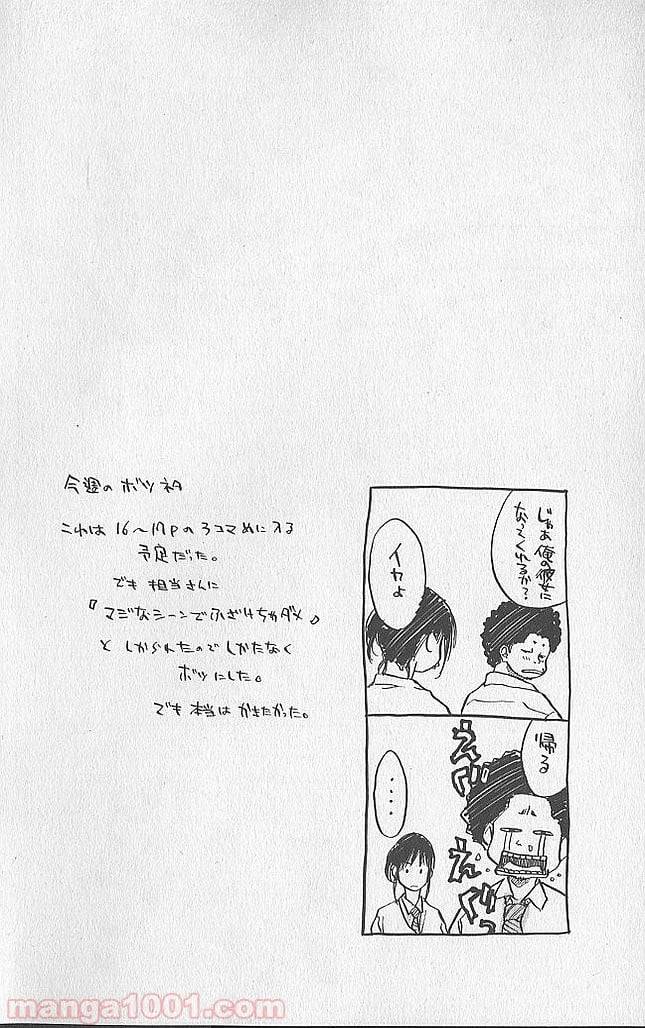 今週のボツネタ
これは16〜17Pの3コマめに入る
予定だった。
でも担当さんに
『マジなシーンでふざけちゃダメ』
としかられたのでしかたなく
ボツにした。
でも本当はかきたかった。
じゃあ俺の彼女に
なってくれるか?
イヤよ
帰る
えぐっ
えぐっ
・・・・
manga1001.com